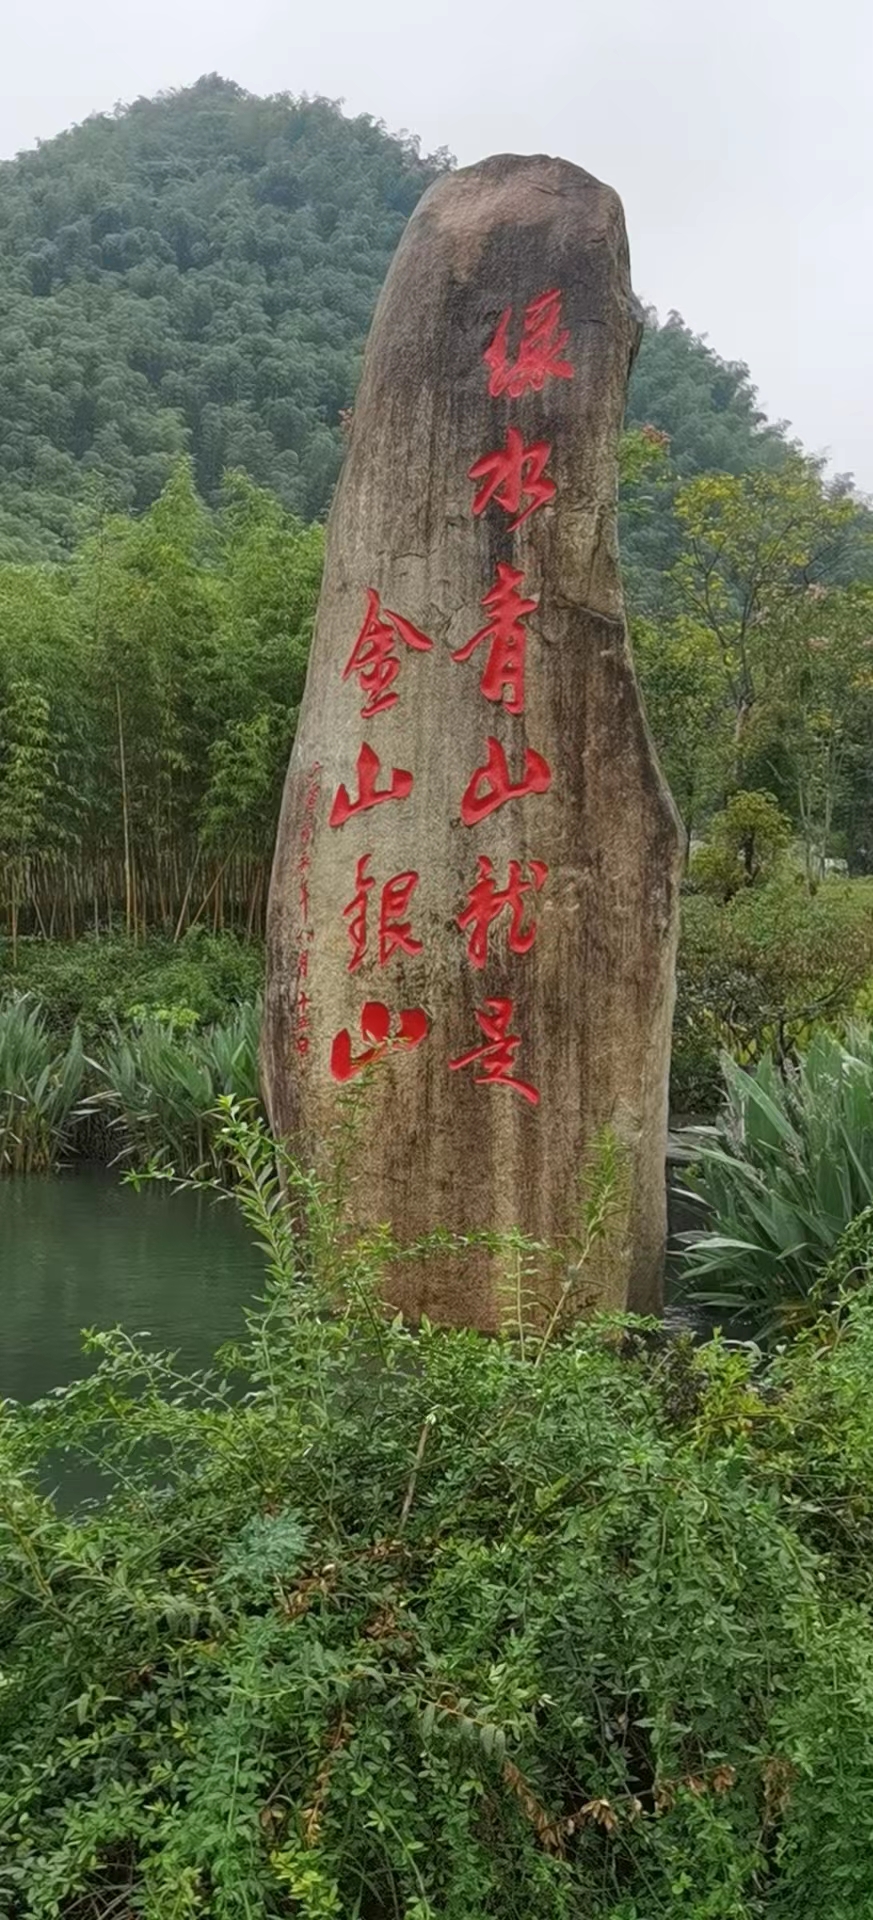 绿水青山就是
金山银山
二〇〇五年八月十五日